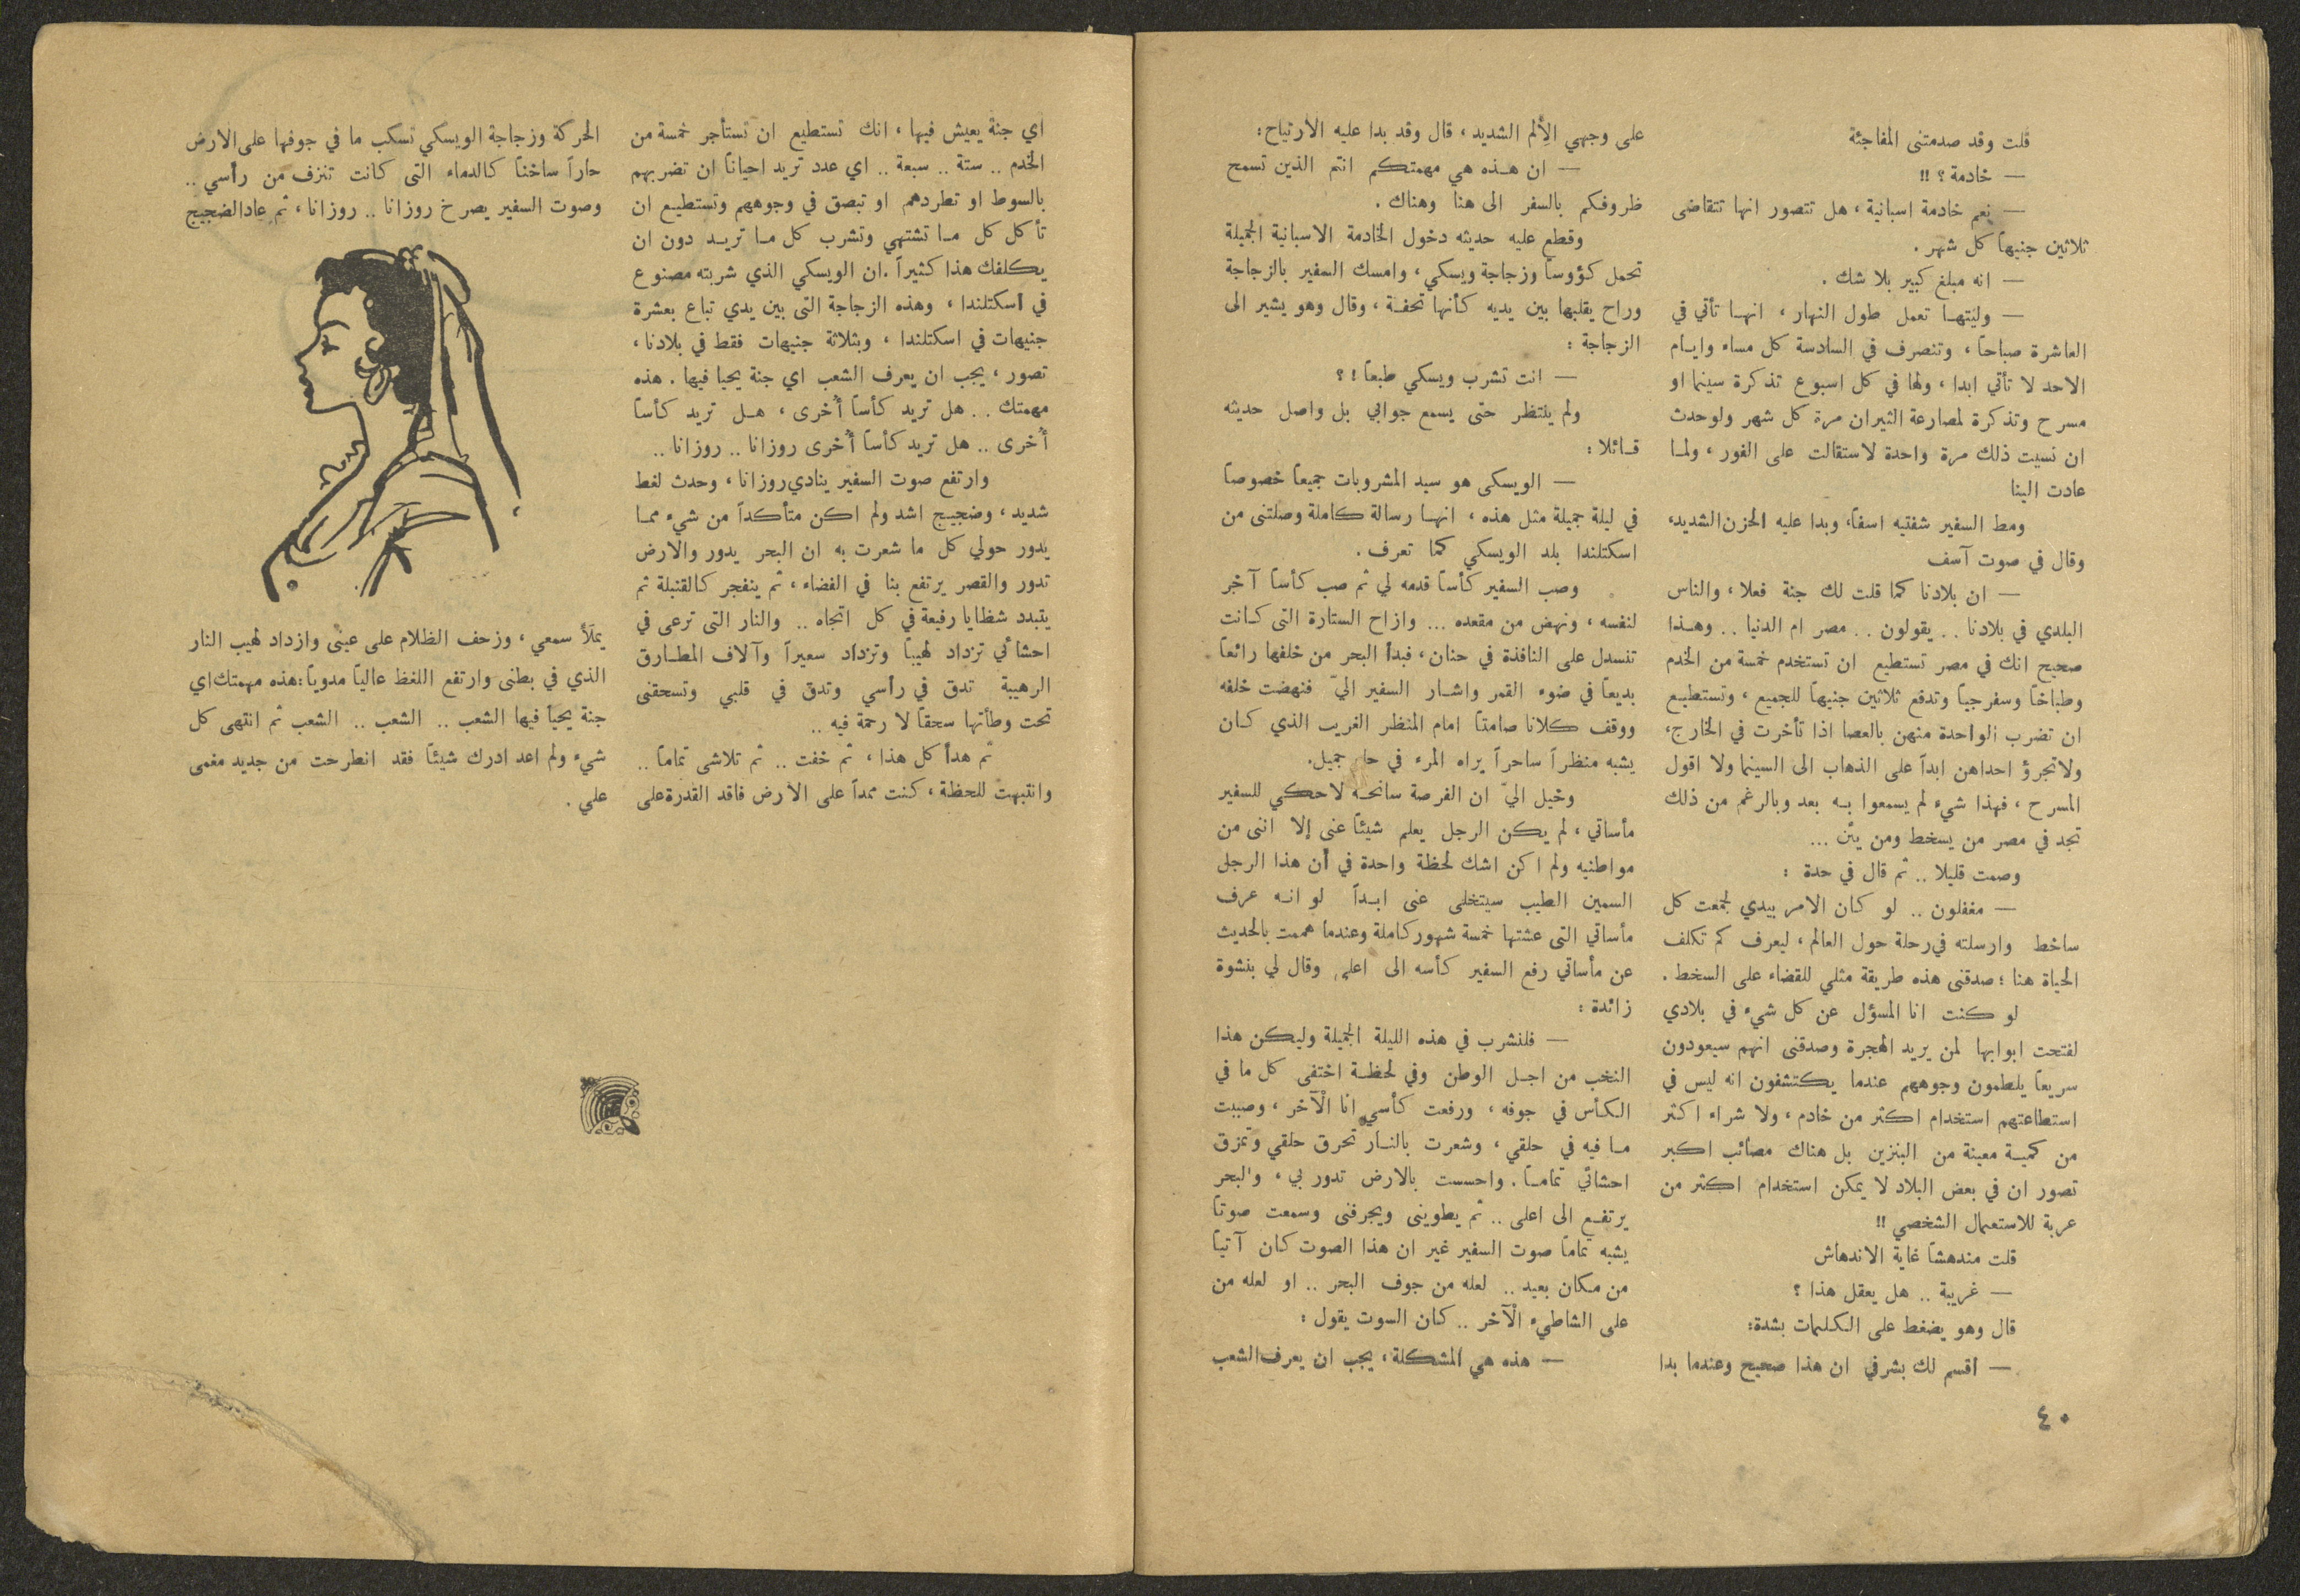 قلت وقد صدمتنى المفاجئة
— خادمة ؟ !!
— نعم خادمة اسبانية ، هل تتصور انها تتقاضى
ثلاثين جنيهاً كل شهر .
— انه مبلغ كبير بلا شك .
— وليتها تعمل طول النهار ، انها تأتي في
العاشرة صباحاً ، وتنصرف في السادسة كل مساء وايام
الاحد لا تأتي ابدا ، ولها في كل اسبوع تذكرة سينما او
مسرح وتذكرة لمصارعة الثيران مرة كل شهر ولوحدث
ان نسيت ذلك مرة واحدة لاستقالت على الفور ، ولما
عادت الينا
ومط السفير شفتيه اسفاً، وبدا عليه الحزن الشديد،
وقال في صوت آسف
— ان بلادنا كما قلت لك جنة فعلا ، والناس
البلدي في بلادنا .. يقولون .. مصر ام الدنيا .. وهذا
صحيح انك في مصر تستطيع ان تستخدم خمسة من الخدم
وطباخاً وسفرجياً وتدفع ثلاثين جنيهاً للجميع ، وتستطيع
ان تضرب الواحدة منهن بالعصا اذا تأخرت في الخارج،
ولاتجرؤ احداهن ابداً على الذهاب الى السينما ولا اقول
المسرح ، فهذا شيء لم يسمعوا به بعد وبالرغم من ذلك
تجد في مصر من يسخط ومن يئن ...
وصمت قليلا .. ثم قال في حدة :
— مغفلون .. لو كان الامر بيدي لجمعت كل
ساخط وارسلته في رحلة حول العالم ، ليعرف كم تكلف
الحياة هنا ؛ صدقنى هذه طريقة مثلي للقضاء على السخط .
لو كنت انا المسؤل عن كل شيء في بلادي
لفتحت ابوابها لمن يريد الهجرة وصدقنى انهم سيعودون
سريعاً يلطمون وجوههم عندما يكتشفون انه ليس في
استطاعتهم استخدام اكثر من خادم ، ولا شراء اكثر
من كمية معينة من البنزين بل هناك مصائب اكبر
تصور ان في بعض البلاد لا يمكن استخدام اكثر من
عربة للاستعمال الشخصي !!
قلت مندهشاً غاية الاندهاش
— غريبة .. هل يعقل هذا ؟
قال وهو يضغط على الكلمات بشدة:
— اقسم لك بشرفي ان هذا صحيح وعندما بدا
٤٠
على وجهي الألم الشديد ، قال وقد بدا عليه الارتياح:
— ان هذه هي مهمتكم انتم الذين تسمح
ظروفكم بالسفر الى هنا وهناك .
وقطع عليه حديثه دخول الخادمة الاسبانية الجميلة
تحمل كؤوساً وزجاجة ويسكي ، وامسك السفير بالزجاجة
وراح يقلبها بين يديه كأنها تحفة ، وقال وهو يشير الى
الزجاجة :
— انت تشرب ويسكي طبعاً ! ؟
ولم ينتظر حتى يسمع جوابي بل واصل حديثه
قائلا :
— الويسكى هو سيد المشروبات جميعاً خصوصاً
في ليلة جميلة مثل هذه ، انها رسالة كاملة وصلتنى من
اسكتلندا بلد الويسكي كما تعرف .
وصب السفير كأساً قدمه لي ثم صب كأساً آخر
لنفسه ، ونهض من مقعده ... وازاح الستارة التى كانت
تنسدل على النافذة في حنان ، فبدأ البحر من خلفها رائعاً
بديعاً في ضوء القمر واشار السفير اليّ فنهضت خلفه
ووقف كلانا صامتاً امام المنظر الغريب الذي كان
يشبه منظراً ساحراً يراه المرء في حلم جميل.
وخيل اليّ ان الفرصة سانحة لاحكي للسفير
مأساتي ، لم يكن الرجل يعلم شيئاً عنى إلا اننى من
مواطنيه ولم اكن اشك لحظة واحدة في أن هذا الرجل
السمين الطيب سيتخلى عنى ابداً لو انه عرف
مأساتي التى عشتها خمسة شهور كاملة وعندما هممت بالحديث
عن مأساتي رفع السفير كأسه الى اعلى وقال لي بنشوة
زائدة :
— فلنشرب في هذه الليلة الجميلة وليكن هذا
النخب من اجل الوطن وفي لحظة اختفى كل ما في
الكأس في جوفه ، ورفعت كأسي انا الآخر ، وصببت
ما فيه في حلقي ، وشعرت بالنار تحرق حلقي وتمزق
احشائي تماماً . واحسست بالارض تدور بي ، والبحر
يرتفع الى اعلى .. ثم يطوينى ويجرفنى وسمعت صوتاً
يشبه تماماً صوت السفير غير ان هذا الصوت كان آتياً
من مكان بعيد .. لعله من جوف البحر .. او لعله من
على الشاطىء الآخر .. كان السوت يقول :
— هذه هي المشكلة ، يجب ان يعرف الشعب
اي جنة يعيش فيها ، انك تستطيع ان تستأجر خمسة من
الخدم .. ستة .. سبعة .. اي عدد تريد احياناً ان تضربهم
بالسوط او تطردهم او تبصق في وجوههم وتستطيع ان
تأكل كل ما تشتهي وتشرب كل ما تريد دون ان
يكلفك هذا كثيراً .ان الويسكي الذي شربته مصنوع
في اسكتلندا ، وهذه الزجاجة التى بين يدي تباع بعشرة
جنيهات في اسكتلندا ، وبثلاثة جنيهات فقط في بلادنا ،
تصور ، يجب ان يعرف الشعب اي جنة يحيا فيها . هذه
مهمتك .. هل تريد كأساً أخرى ، هل تريد كأساً
أخرى .. هل تريد كأساً أخرى روزانا .. روزانا ..
وارتفع صوت السفير ينادي روزانا ، وحدث لغط
شديد ، وضجيج اشد ولم اكن متأكداً من شيء مما
يدور حولي كل ما شعرت به ان البحر يدور والارض
تدور والقصر يرتفع بنا في الفضاء ، ثم ينفجر كالقنبلة ثم
يتبدد شظايا رفيعة في كل اتجاه .. والنار التى ترعى في
احشائي تزداد لهيباً وتزداد سعيراً وآلاف المطارق
الرهيبة تدق في رأسي وتدق في قلبي وتسحقنى
تحت وطأتها سحقاً لا رحمة فيه ..
ثم هدأ كل هذا ، ثم خفت .. ثم تلاشى تماماً ..
وانتبهت للحظة ، كنت ممداً على الارض فاقد القدرة على
الحركة وزجاجة الويسكي تسكب ما في جوفها على الارض
حاراً ساخناً كالدماء التى كانت تنزف من رأسي ..
وصوت السفير يصرخ روزانا .. روزانا ، ثم عاد الضجيج
يملأ سمعي ، وزحف الظلام على عينى وازداد لهيب النار
الذي في بطنى وارتفع اللغظ عالياً مدوياً: هذه مهمتك اي
جنة يحيا فيها الشعب .. الشعب .. الشعب ثم انتهى كل
شيء ولم اعد ادرك شيئاً فقد انطرحت من جديد مغمى
علي .